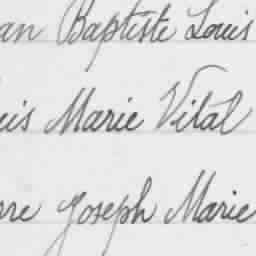 an Baptiste Louis
uis Marie Vital
rre Joseph Marie